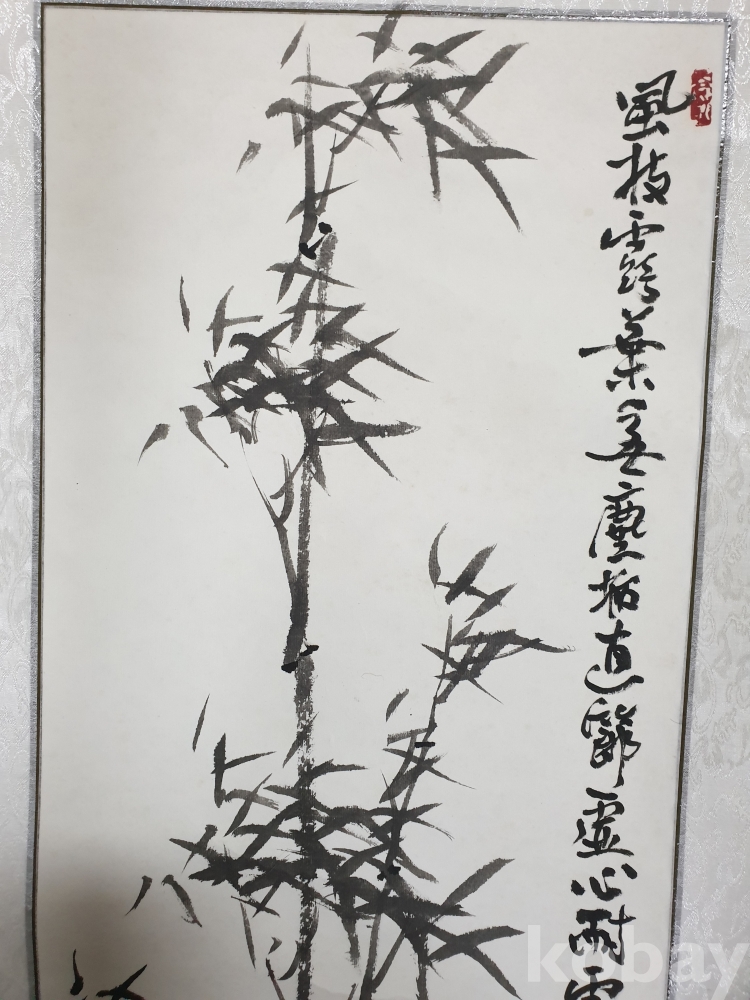 風枝露葉無塵垢直節虛心耐
kobay